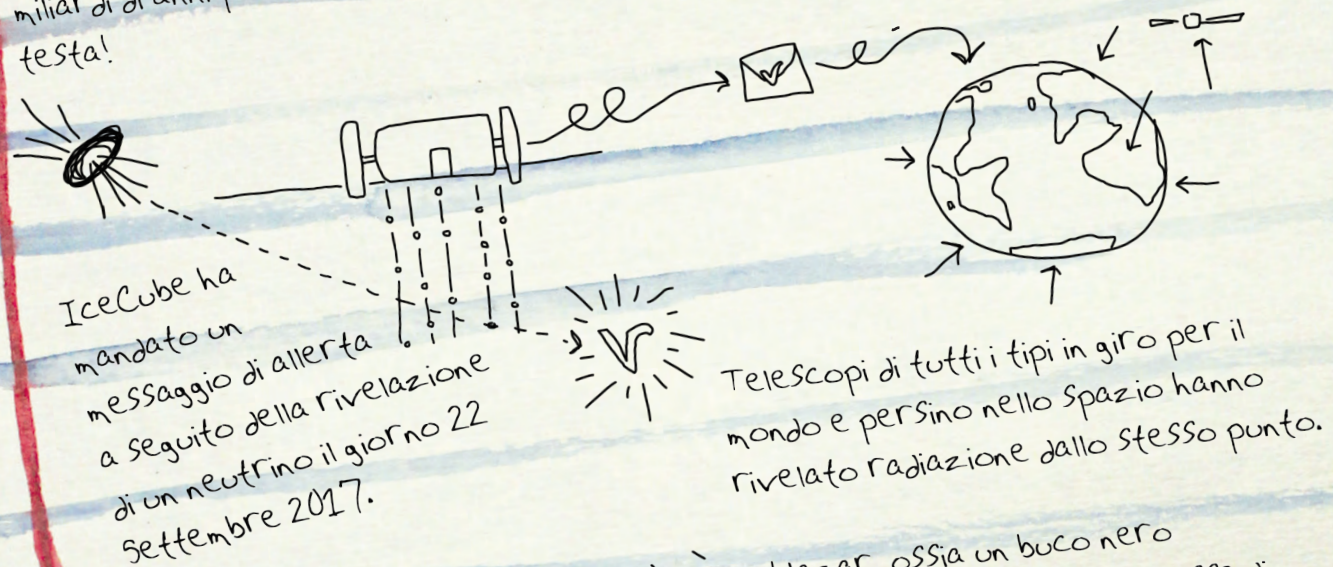 testa!
IceCube ha
mandato un
messaggio di allerta
a seguito della rivelazione
di un neutrino il giorno 22
settembre 2017.
Telescopi di tutti i tipi in giro per il
mondo e persino nello spazio hanno
rivelato radiazione dallo stesso punto.
ossia un buco nero